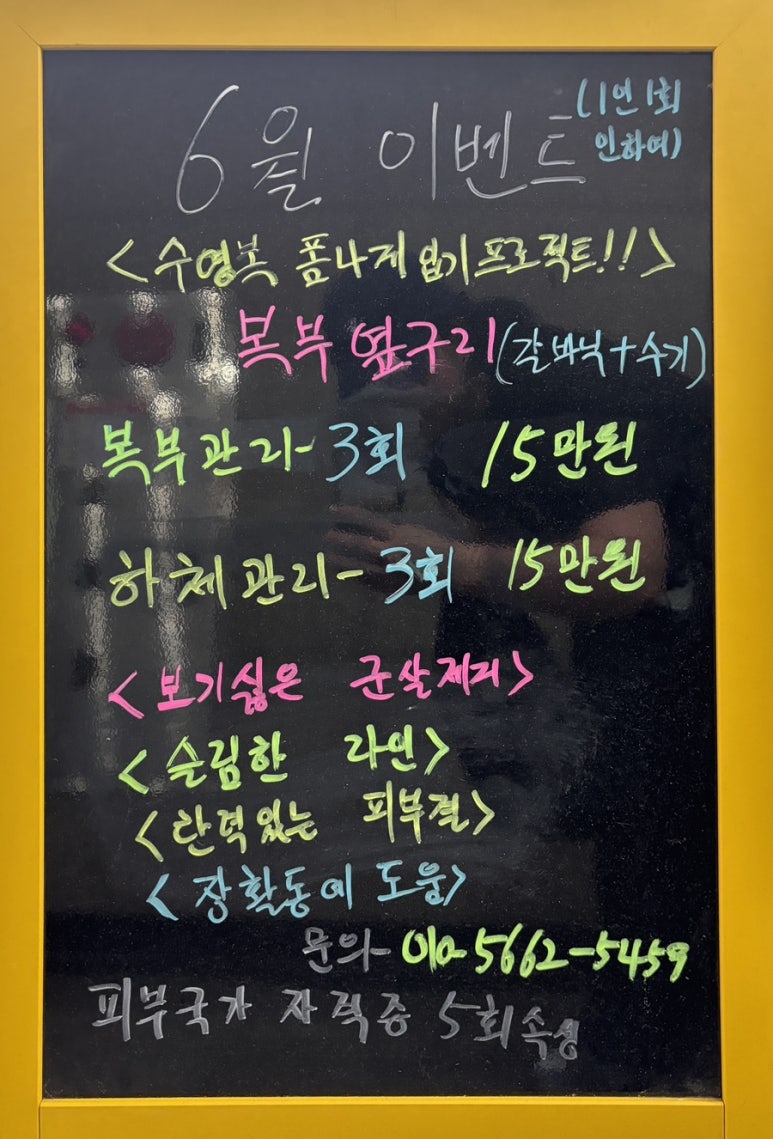 6월 이벤트 (1인 1회
인하여)
<수영복 폼나게 입기 프로젝트!!>
복부 옆구리 (갈바닉+수기)
복부관리- 3회 15만원
하체관리- 3회 15만원
<보기싫은 군살제거>
<슬림한 라인>
<탄력있는 피부결>
<장활동에 도움>
문의- 010-5662-5459
피부국가 자격증 5회속성